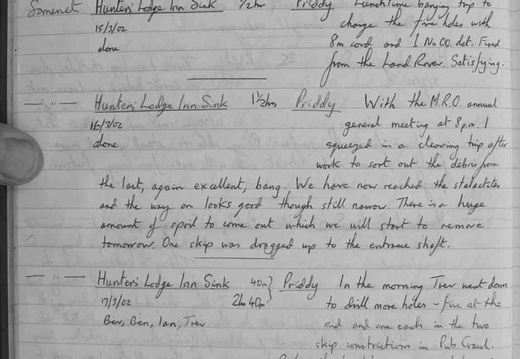 Somerset Hunters' Lodge Inn Sink ½hr Priddy Lunchtime banging trip to
15/3/02 charge the five holes with
alone 8m cord and 1 No.00. det. Fired
from the Land Rover. Satisfying.
— " — Hunters' Lodge Inn Sink 1½hrs Priddy With the M.R.O. annual
16/3/02 general meeting at 8pm I
alone squeezed in a clearing trip after
work to sort out the debris from
the last, again excellent, bang. We have now reached the stalactites
and the way on looks good though still narrow. There is a huge
amount of spoil to come out which we will start to remove
tomorrow. One skip was dragged up to the entrance shaft.
— " — Hunters' Lodge Inn Sink 40m } Priddy In the morning Trev went down
17/3/02 2h 40m to drill more holes - five at the
Bev, Ben, Ian, Trev end and one each in the two
skip constrictions in Pub Crawl.